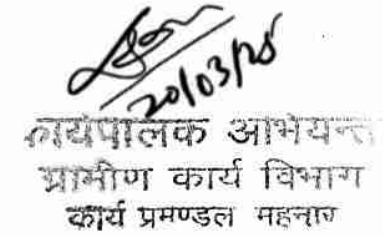 20/03/25
कार्यपालक अभियन्ता
ग्रामीण कार्य विभाग
कार्य प्रमण्डल महनार